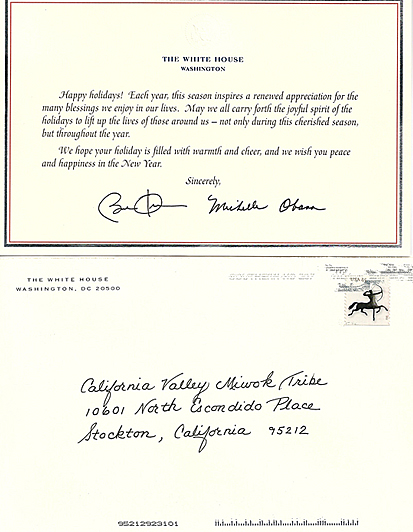 THE WHITE HOUSE
WASHINGTON
Happy holidays! Each year, this season inspires a renewed appreciation for the
many blessings we enjoy in our lives. May we all carry forth the joyful spirit of the
holidays to lift up the lives of those around us – not only during this cherished season,
but throughout the year.
We hope your holiday is filled with warmth and cheer, and we wish you peace
and happiness in the New Year.
Sincerely,
Michelle Obama
THE WHITE HOUSE
WASHINGTON, DC 20500
California Valley Miwok Tribe
10601 North Escondido Place
Stockton, California 95212
95212923101